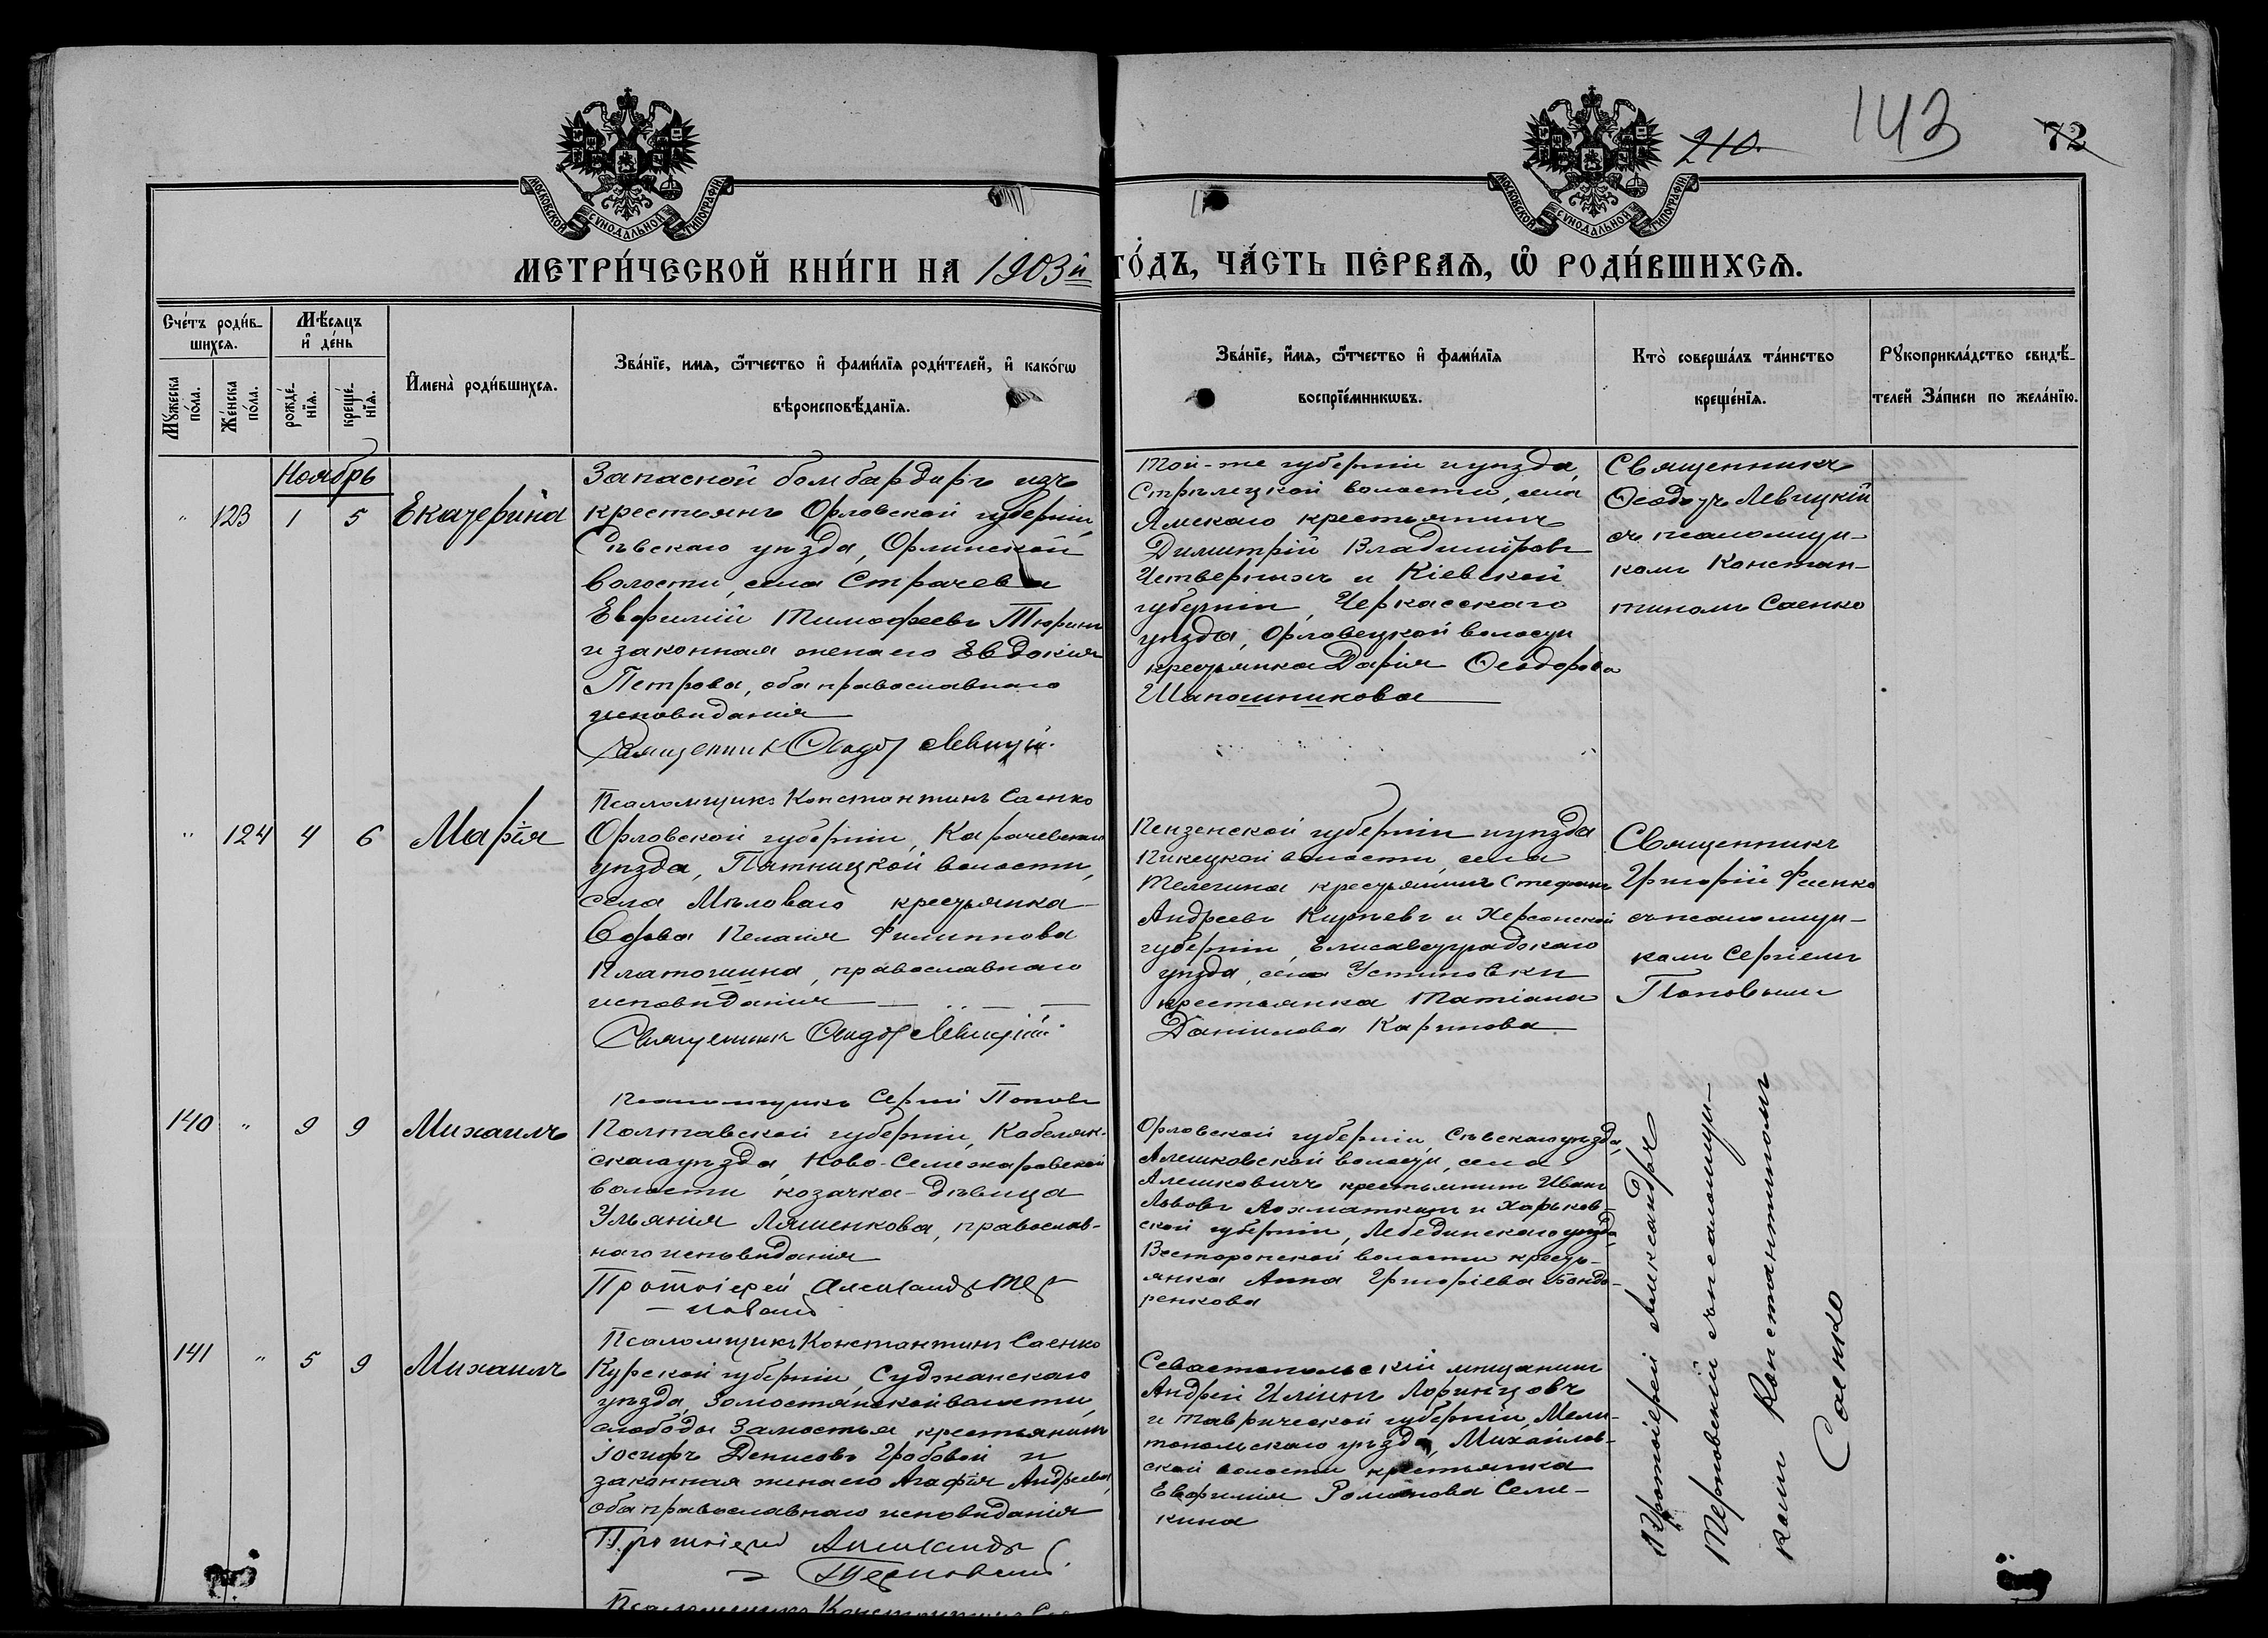 143
210.
72
МОСКОВСКОЙ СѴНОДАЛЬНОЙ ТИПОГРАФІИ
МОСКОВСКОЙ СѴНОДАЛЬНОЙ ТИПОГРАФІИ
МЕТРИ́ЧЕСКОЙ КНИ́ГИ НА 1903й ГО́ДЪ, ЧА́СТЬ ПЕ́РВАѦ, Ѽ РОДИ́ВШИХСѦ.
Сче́тъ роди́в-
шихсѧ.
Мꙋ́жеска
по́ла.
Же́нска
по́ла.
Мѣ́сѧцъ
и҆ де́нь
рожде́-
нїѧ.
креще́-
нїѧ.
И҆мена̀ роди́вшихсѧ.
Зва́нїе, имѧ, ѻ҆́тчество и҆ фами́лїѧ роди́телей, и҆ како́гѡ
вѣроисповѣ́данїѧ.
Зва́нїе, и҆́мѧ, ѻ҆́тчество и҆ фами́лїѧ
воспрїе́мникѡвъ.
Кто̀ соверша́лъ та́инство
креще́нїѧ.
Рꙋкоприкла́дство свидѣ́-
телей За́писи по жела́нїю.
Ноябрь
" 123 1 5 Екатерина
Запасной бомбардиръ изъ
крестьянъ Орловской губерніи,
Сѣвскаго уѣзда, Орлинской
волости, села Страчева
Евфимій Тимофеевъ Тюринъ
и законная жена его Евдокия
Петрова, оба православнаго
исповѣданія
Священникъ Ѳеодоръ Левицкій
Псаломщикъ Константинъ Саенко
Той-же губерніи и уѣзда,
Стрѣлецкой волости, села
Ямскаго крестьянинъ
Димитрій Владиміровъ
Четверикъ и Кіевской
губерніи, Черкасскаго
уѣзда, Орловецкой волости
крестьянка Дарія Ѳеодорова
Шапошникова
Священникъ
Ѳеодоръ Левицкій
съ псаломщи-
комъ Констан-
тиномъ Саенко
" 124 4 6 Марія
Орловской губерніи, Карачевскаго
уѣзда, Пятницкой волости,
села Мѣловаго крестьянка
вдова Пелагія Филиппова
Платошина, православнаго
исповѣданія
Священникъ Ѳеодоръ Левицкій
Псаломщикъ Сергій Поповъ
Пензенской губерніи и уѣзда
волости, села
Телегина крестьянинъ Стефанъ
Андреевъ и Херсонской
губерніи, Елисаветградскаго
уѣзда, села Устиновки
крестьянка Татіана
Даніилова Каринова
Священникъ
Григорій Фаенко
съ псаломщи-
комъ Сергіемъ
Поповымъ
140 " 9 9 Михаилъ
Полтавской губерніи, Кобеляк-
скаго уѣзда, Ново-Сенжаровской
волости козачка-дѣвица
Ульянія Ляшенкова, православ-
наго исповѣданія
Протоіерей Александръ Тер-
новскій
Псаломщикъ Константинъ Саенко
Орловской губерніи, Сѣвскаго уѣзда,
Алешковской волости, села
Алешковичъ крестьянинъ Иванъ
Львовъ Лохматкинъ и Харьков-
ской губерніи, Лебединскаго уѣзда,
Вестороnской волости кресть-
янка Анна Григоріева Бонда-
ренкова
Протоіерей Александръ
Терновскій съ псаломщи-
комъ Константиномъ
Саенко
141 " 5 9 Михаилъ
Курской губерніи, Суджанскаго
уѣзда, Замостянской волости,
слободы Замостья крестьянинъ
Іосифъ Денисовъ Гробовой и
законная жена его Агафія Андреева,
оба православнаго исповѣданія
Протоіерей Александръ
Терновскій
Севастопольскій мѣщанинъ
Андрей Иліинъ Ларинцовъ
и Таврической губерніи, Мели-
топольскаго уѣзда, Михайлов-
ской волости крестьянка
Евфимія Романова Семи-
кина
Псаломщикъ Константинъ Саенко